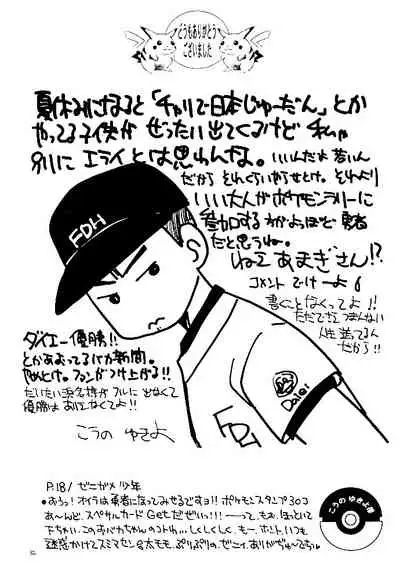 どうもありがとう
ございました
夏休みになると「チャリで日本じゅーだん」とか
やってる子供が ぜったい出てくるけど 私ゃ
別に エライとは思わんな。いいんだよ若いん
だから それくらいやらせとけ。それより
いい大人がポケモンラリーに
参加する方がよっぽど勇者
だと思うね。
ねェ あまぎさん!?
コメント でけーよ
書くことなくってよ!!
ただでさえつまんない
人生送ってるん
だから!!
FDH
ダイエー優勝!!
とかあおってるバカ新聞。
やめとけ。ファンがつけ上がる!!
だいたい浜名棒が フルに出なくて
優勝はありえなくてよ!!
こうの ゆきよ
Daiei
FDH
P.18/ ゼニガメ少年
●おうっ!オイラは勇者になってみせるですョ!!ポケモンスタンプ30コ
あ〜んど、スペサルカードGetだぜいっ!!!──って、もォ、ほっといて
下ちゃい、このおバカちゃんのコトわ...しくしくしく、もー、ホント、いつも
迷惑かけてスミマセン
ぷりぷりの、ゼニィ、ありがぢゅ〜でちぃ
こうの ゆきよ